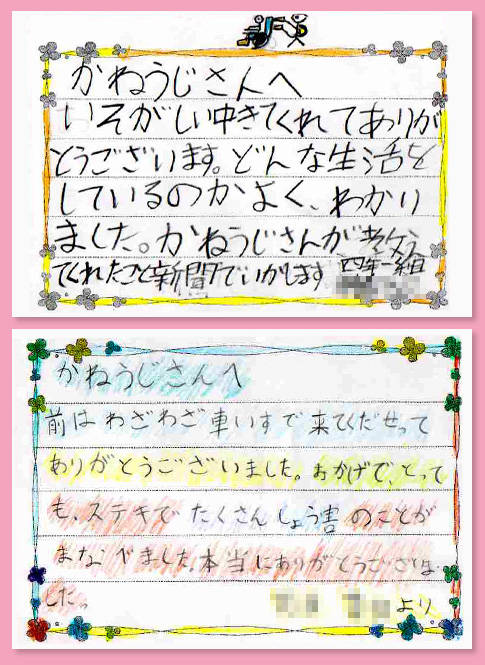 かねうじさんへ
いそがしい中きてくれてありが
とうございます。どんな生活を
しているのかよく、わかり
ました。かねうじさんが教え
てくれたこと新聞でいかします 四年一組
かねうじさんへ
前はわざわざ車いすで来てくださって
ありがとうございました。おかげで、とって
も、ステキでたくさんしょう害のことが
まなべました。本当にありがとうございま
した。
より